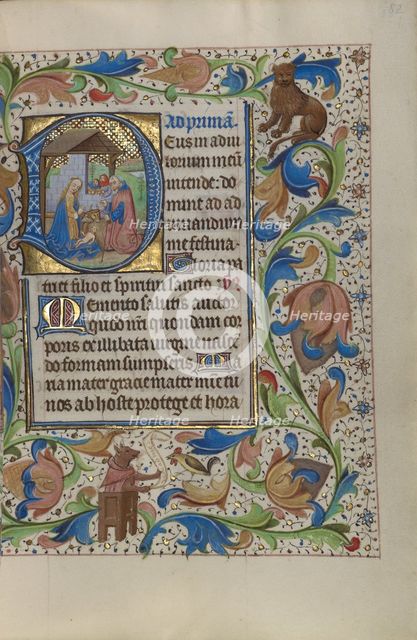 82
Ad primã
Deus in adiu
torium meũ
intende: do
mine ad ad
iuuandum
me festina
Gloria pa
tri et filio et spiritui sancto
Memento salutis auctor
quod nr̃i quondam cor
poris ex illibata virgine nasce͂
do formam sumpseris Ma
ria mater gracie mater mie tu
nos ab hoste protege et hora
Heritage
Heritage
Heritage
Heritage
Heritage
Heritage